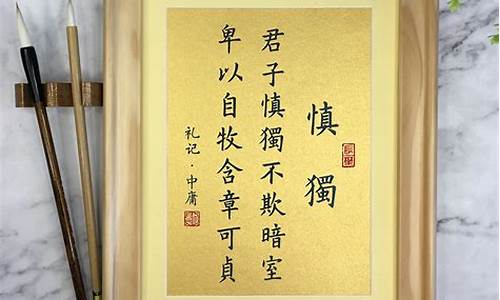 慎獨
君子慎獨不欺暗室
卑以自牧含章可貞
礼记·中庸